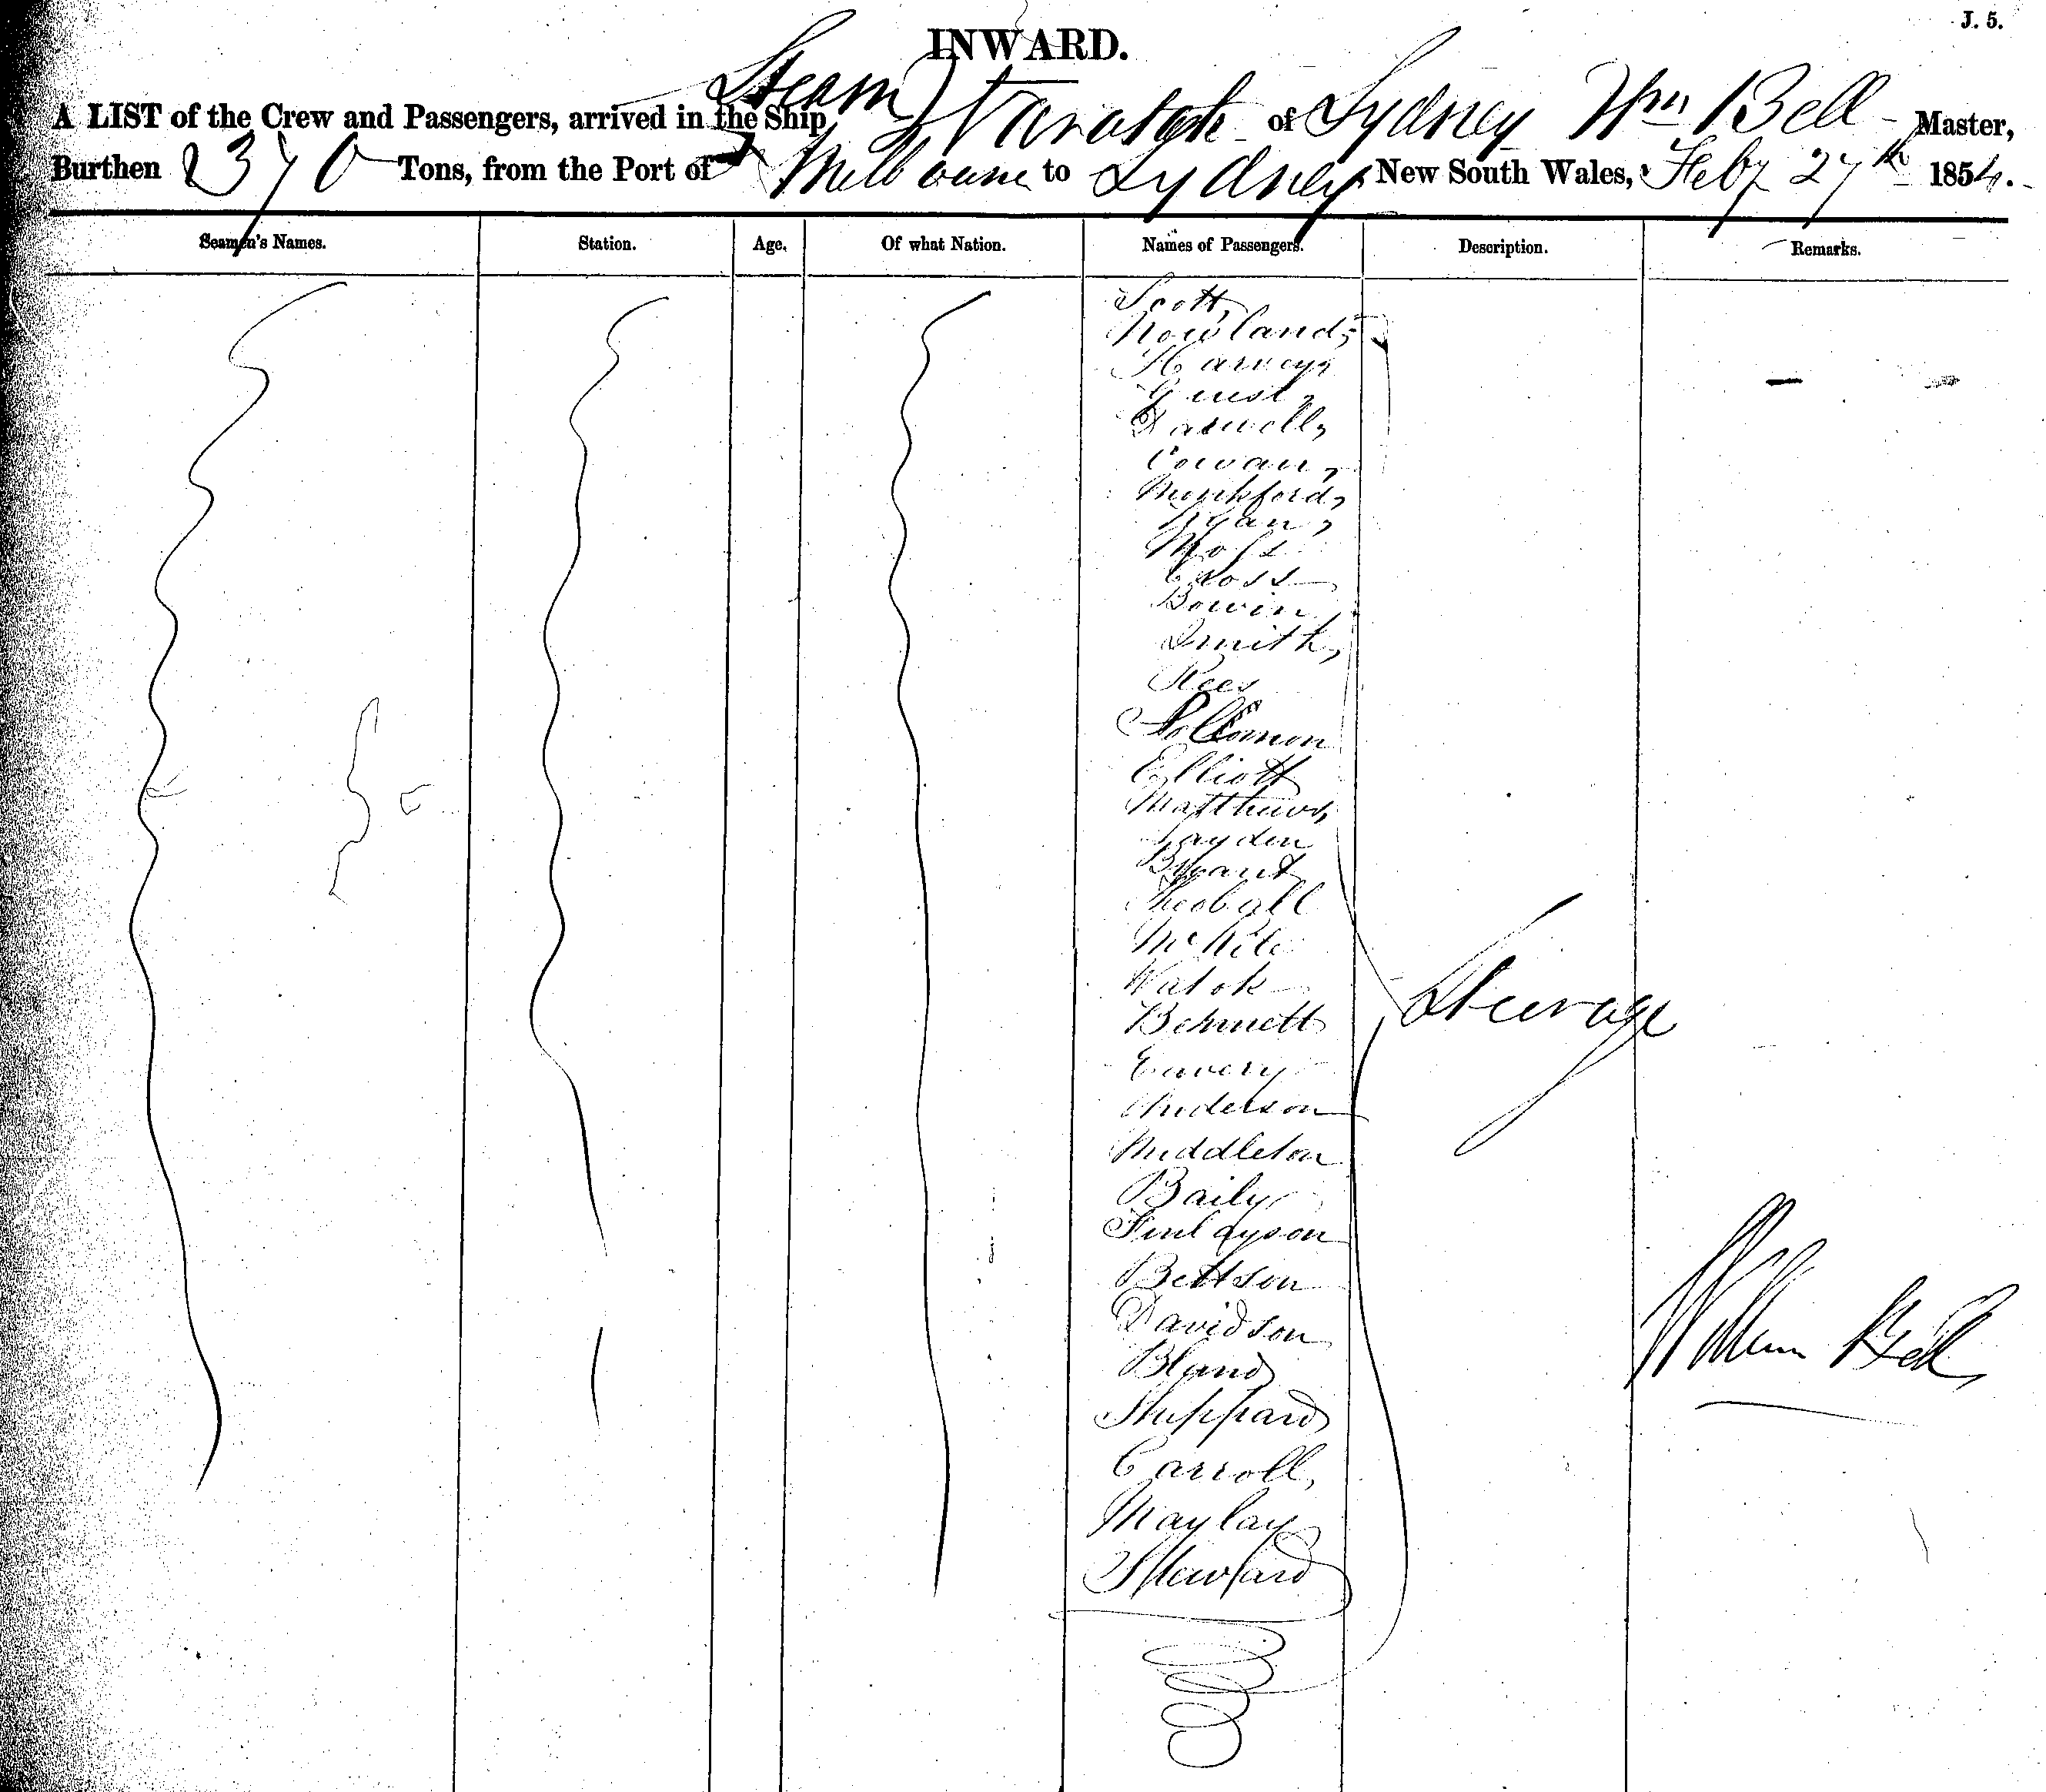 J. 5.
INWARD.
A LIST of the Crew and Passengers, arrived in the Ship Steam of Sydney Wm Bell Master,
Burthen 370 Tons, from the Port of Melbourne to Sydney New South Wales, Feby 27th 1854.
Seamen's Names. Station. Age. Of what Nation. Names of Passengers. Description. Remarks.
Scott,
Nowland,
Harvey,
Guest,
Cowan,
Ryan,
Moss
Cross
Bowin
Smith,
Rees
Sollomon
Elliott
Matthews,
Layden
Bryant
Theoball
Bennett
Steerage
Anderson
Middleton
Baily
Finlayson
Bettson
Davidson
Bland
William Bell
Sheppard
Carroll,
Maylay
Steward